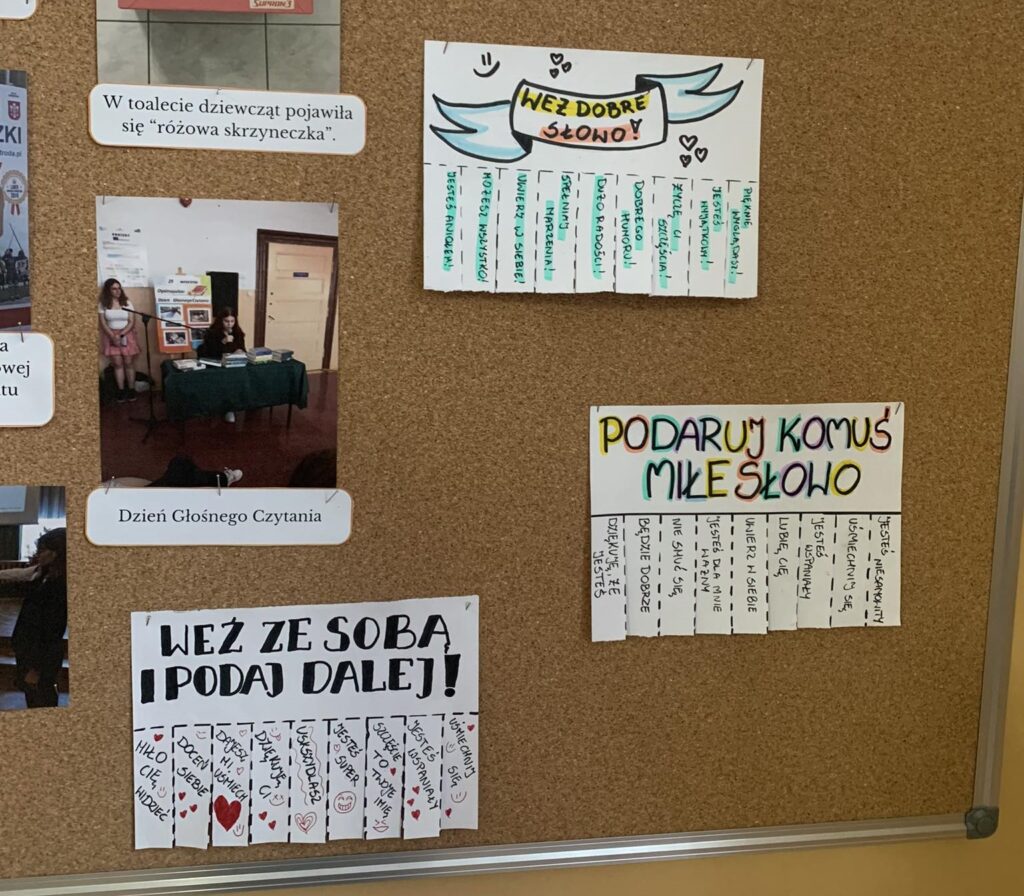 SUPRON3
W toalecie dziewcząt pojawiła
się “różowa skrzyneczka”.
ZKI
a
owej
tu
Dzień Głośnego Czytania
WEŹ DOBRE
SŁOWO!
JESTEŚ ANIOŁEM!
MOŻESZ WSZYSTKO!
UWIERZ W SIEBIE!
SPEŁNIAJ
MARZENIA!
DUŻO RADOŚCI!
DOBREGO
HUMORU!
ŻYCZĘ CI
SZCZĘŚCIA!
JESTEŚ
WYJĄTKOWY!
PIĘKNIE
WYGLĄDASZ!
PODARUJ KOMUŚ
MIŁE SŁOWO
DZIĘKUJĘ, ŻE
JESTEŚ
BĘDZIE DOBRZE
NIE SMUĆ SIĘ
JESTEŚ DLA MNIE
WAŻNY
UWIERZ W SIEBIE
LUBIĘ CIĘ
JESTEŚ
WSPANIAŁY
UŚMIECHNIJ SIĘ
JESTEŚ NIESAMOWITY
WEŹ ZE SOBĄ
I PODAJ DALEJ!
MIŁO
CIĘ
WIDZIEĆ
DOCEŃ
SIEBIE
DAJESZ
MI
UŚMIECH
DZIĘKUJĘ
CI
USKRZYDLASZ
JESTEŚ
SUPER
SZCZĘŚCIE
TO TWOJE
IMIĘ
JESTEŚ
WSPANIAŁY
UŚMIECHNIJ
SIĘ